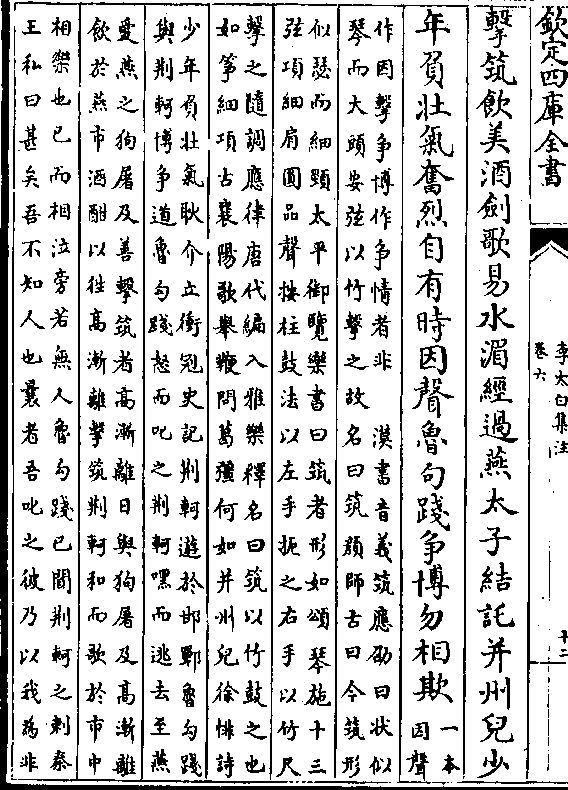 欽定四庫全書
李太白集注
卷六
十二
擊筑飲美酒劍歌易水湄經過燕太子結託并州兒少
年負壯氣奮烈自有時因聲魯句踐爭博勿相欺一本
因聲
作因擊爭博作爭情者非　漢書音義筑應劭曰狀似
琴而大頭安弦以竹擊之故名曰筑顔師古曰今筑形
似瑟而細頸太平御覽樂書曰筑者形如頌琴施十三
弦項細肩圓品聲按柱鼓法以左手扼之右手以竹尺
擊之隨調應律唐代編入雅樂釋名曰筑以竹鼓之也
如箏細項古襄陽歌舉鞭問葛彊何如并州兒徐悱詩
少年負壯氣耿介立衝冠史記荆軻遊於邯鄲魯勾踐
與荆軻博爭道魯勾踐怒而叱之荆軻嘿而逃去至燕
愛燕之狗屠及善擊筑者高漸離日與狗屠及高漸離
飲於燕市酒酣以徃高漸離擊筑荆軻和而歌於市中
相樂也已而相泣旁若無人魯勾踐已聞荆軻之刺秦
王私曰甚矣吾不知人也曩者吾叱之彼乃以我為非